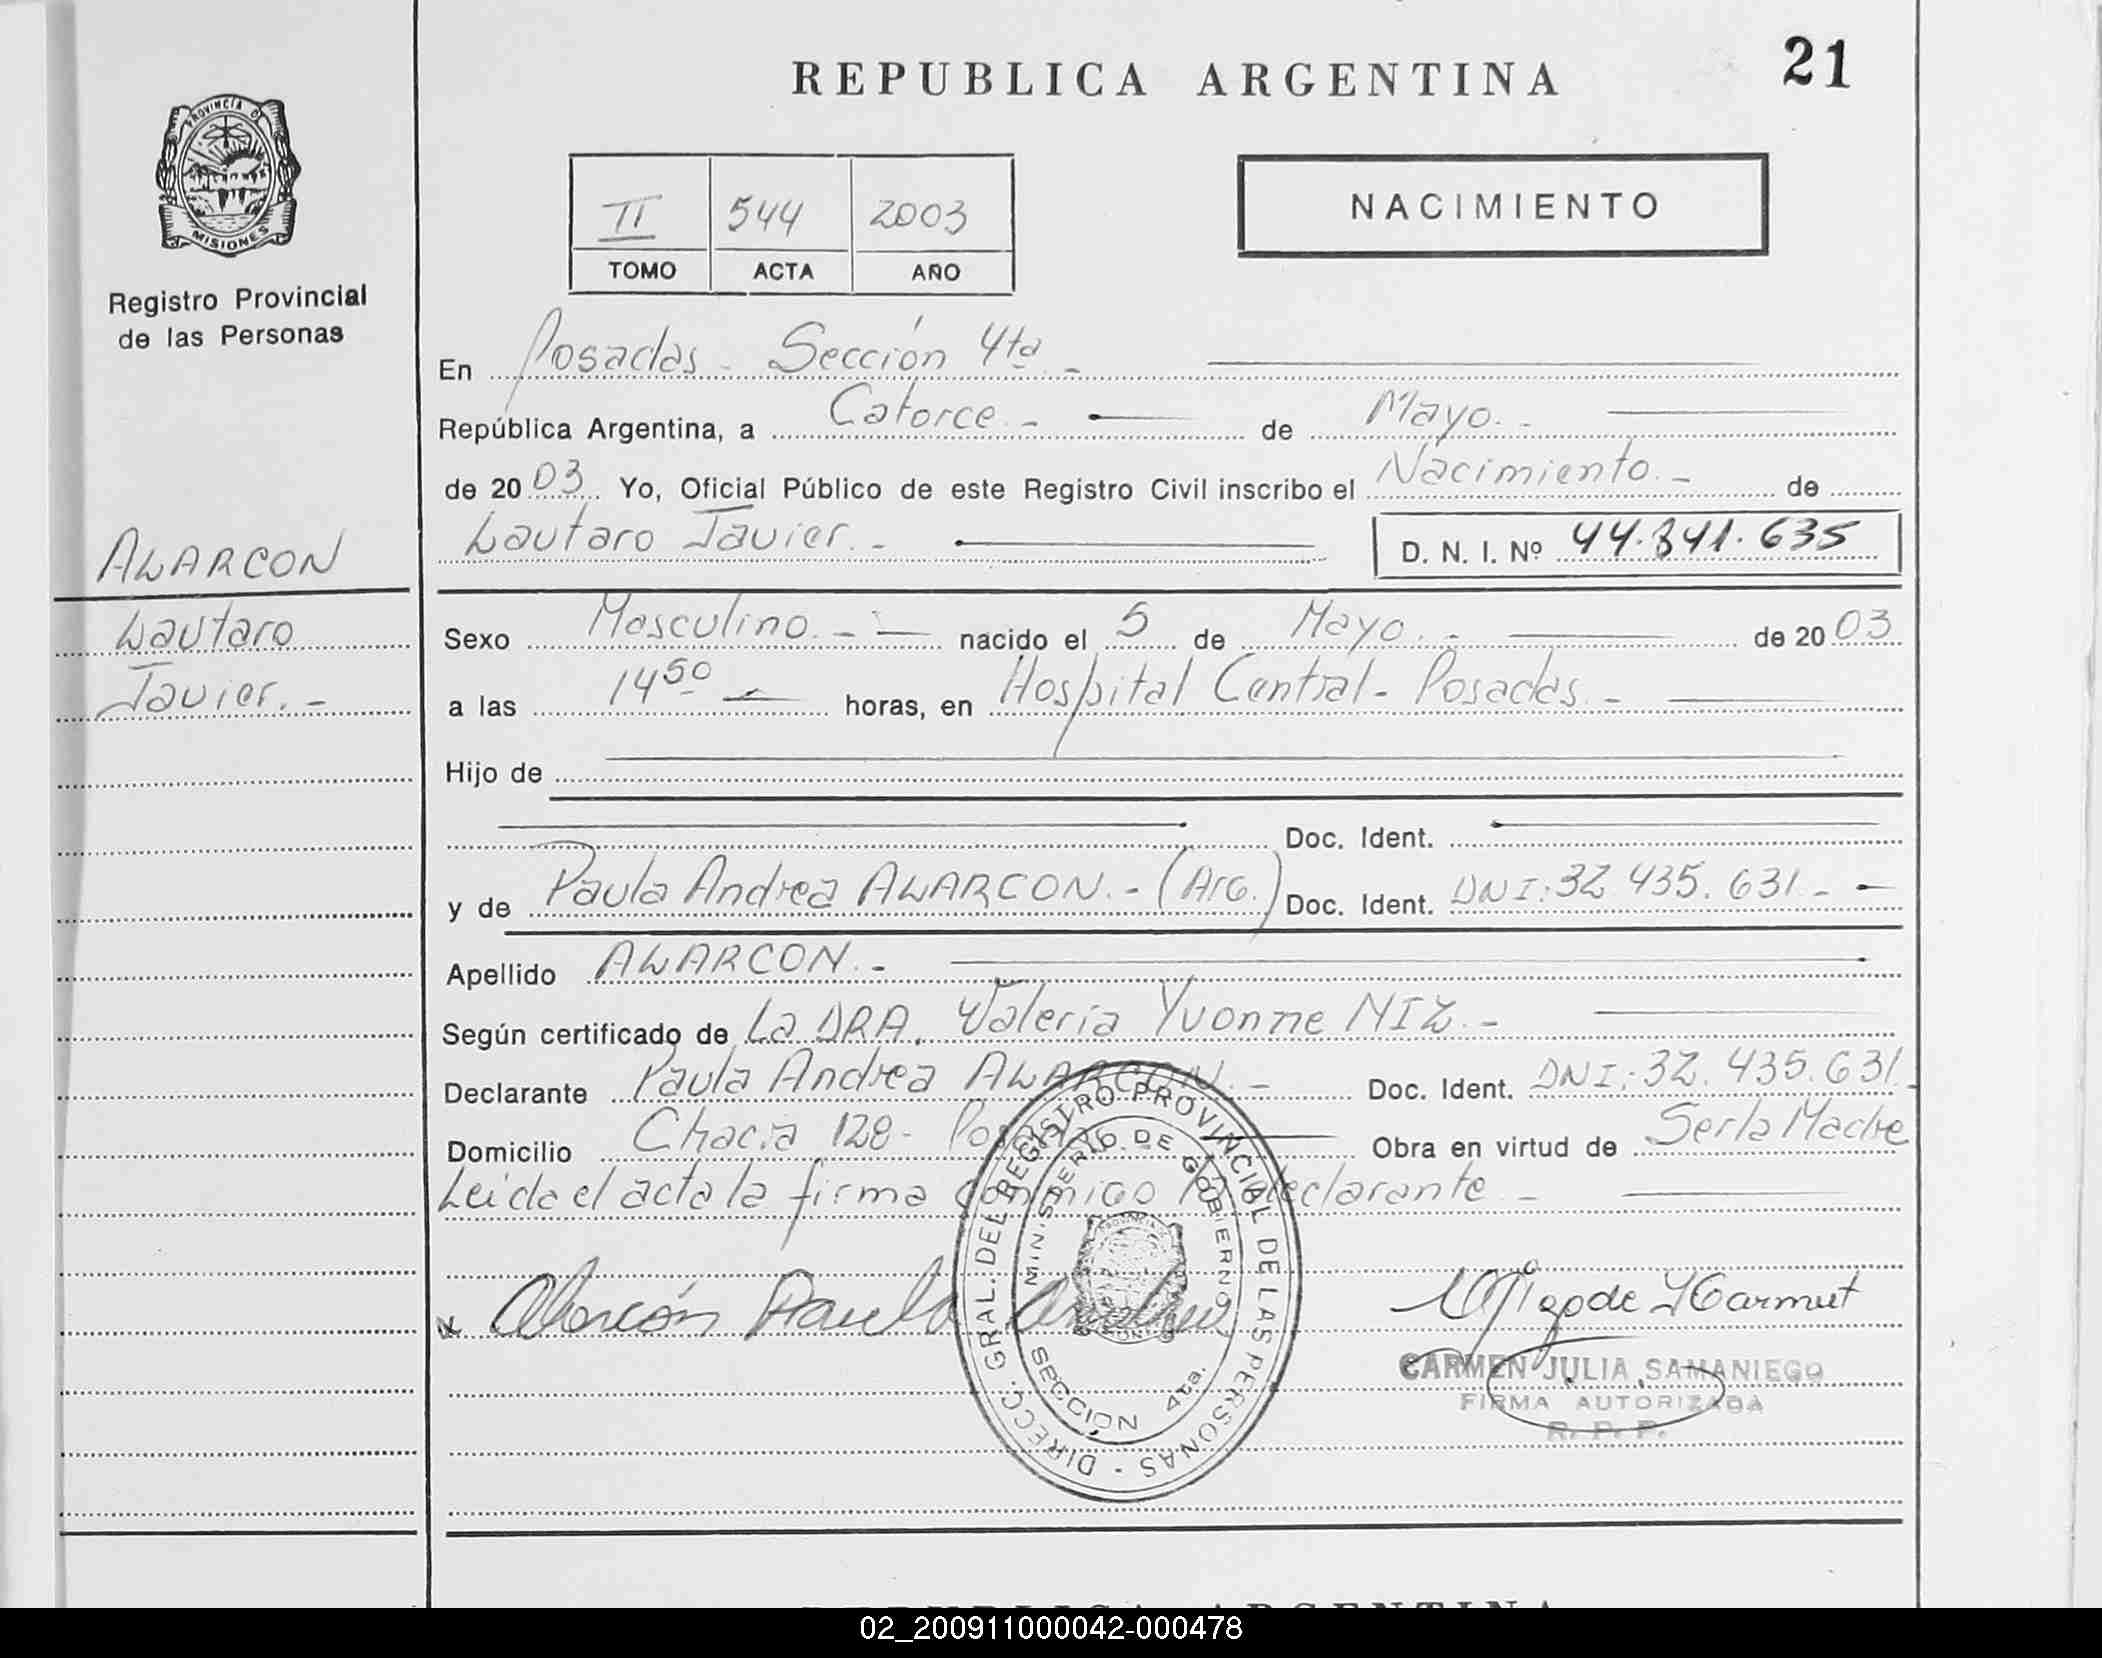 REPUBLICA ARGENTINA
21
PROVINCIA DE
MISIONES
Registro Provincial
de las Personas
II 544 2003
TOMO ACTA AÑO
NACIMIENTO
En Posadas - Sección 4ta. -
República Argentina, a Catorce. - de Mayo. -
de 2003 Yo, Oficial Público de este Registro Civil inscribo el Nacimiento. - de
Lautaro Javier. -
D. N. I. Nº 44.841.635
ALARCON
Lautaro
Javier. -
Sexo Masculino. - nacido el 5 de Mayo. - de 2003
a las 14 50 horas, en Hospital Central - Posadas. -
Hijo de
Doc. Ident.
y de Paula Andrea ALARCON. - (Arg.) Doc. Ident. DNI: 32.435.631. -
Apellido ALARCON. -
Según certificado de La DRA. Valeria Yvonne NIZ. -
Declarante Paula Andrea ALARCON. - Doc. Ident. DNI: 32.435.631. -
Domicilio Chacra 128 - Posadas Obra en virtud de Ser la Madre
Leida el acta la firma conmigo la declarante -
x Alarcón Paula Andrea
DIRECC. GRAL. DEL REGISTRO PROVINCIAL DE LAS PERSONAS -
MINISTERIO DE GOBIERNO
SECCIÓN 4ta.
CARMEN JULIA SAMANIEGO
FIRMA AUTORIZADA
R. P. P.
REPUBLICA ARGENTINA
02_200911000042-000478